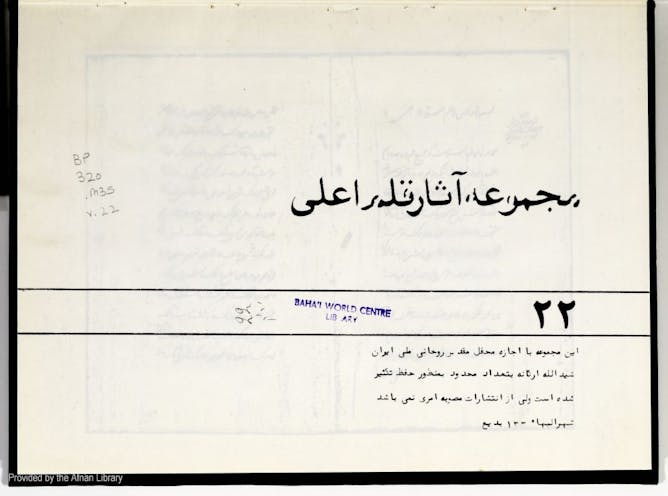 BP
320
.M35
v.22
مجموعه آثار قلم اعلی
BAHA'I WORLD CENTRE
LIB ARY
۲۲
این مجموعه با اجازه محفل مقدس روحانی ملی ایران
شیدالله ارکانه بتعداد محدود بمنظور حفظ تکثیر
شده است ولی از انتشارات مصوبه امری نمی باشد
شهرالبهاء ۱۳۳ بدیع
Provided by the Afnan Library